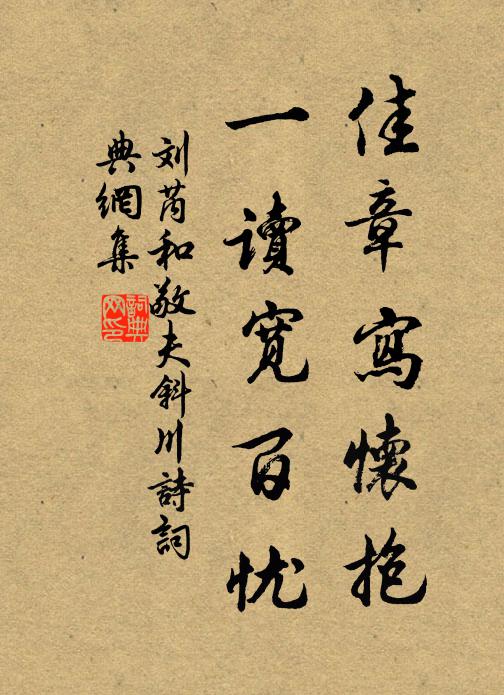 佳章寫懷抱
一讀寬百忧
刘芮和敬夫斜川詩詞
典網集
詞典网印